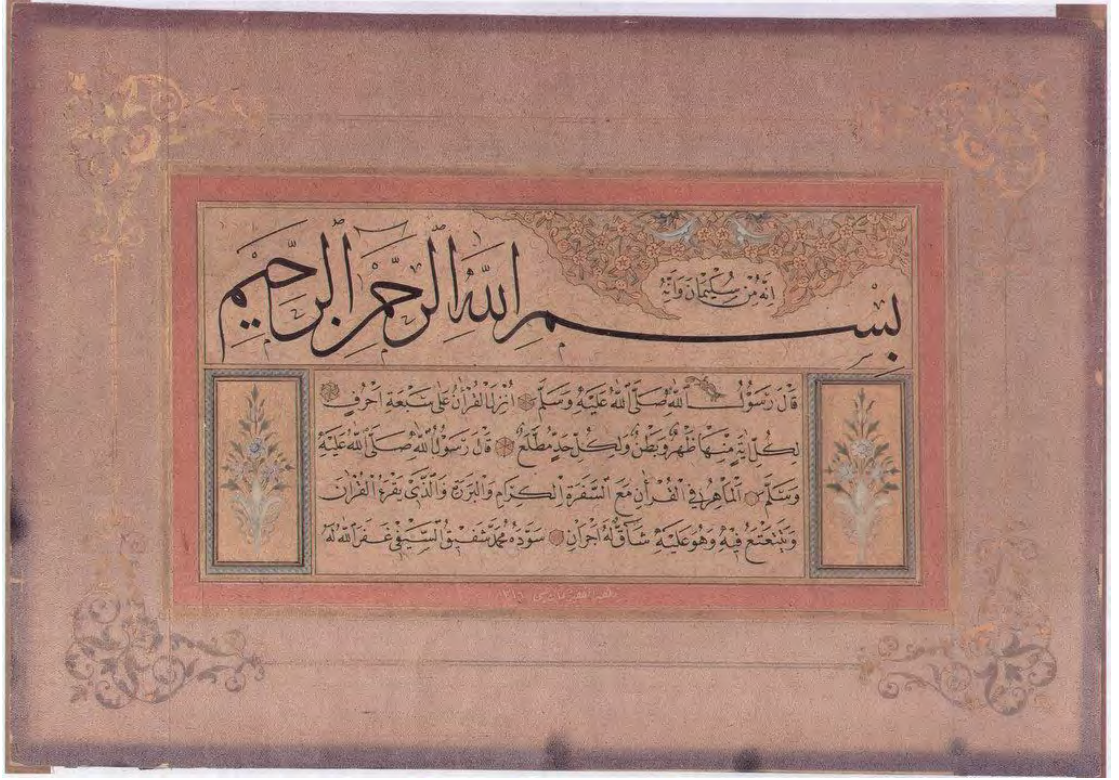 إِنَّهُ مِنْ سُلَيْمَانَ وَإِنَّهُ
بِسْمِ اللهِ الرَّحْمٰنِ الرَّحِيمِ
قَالَ رَسُولُ اللهِ صَلَّى اللهُ عَلَيْهِ وَسَلَّمَ اُنْزِلَ الْقُرْاٰنُ عَلٰى سَبْعَةِ اَحْرُفٍ
لِكُلِّ اٰيَةٍ مِنْهَا ظَهْرٌ وَبَطْنٌ وَلِكُلِّ حَدٍّ مُطَّلَعٌ قَالَ رَسُولُ اللهِ صَلَّى اللهُ عَلَيْهِ
وَسَلَّمَ اَلْمَاهِرُ فِي الْقُرْاٰنِ مَعَ السَّفَرَةِ الْكِرَامِ وَالْبَرَرَةِ وَالَّذِي يَقْرَءُ الْقُرْاٰنَ
وَيَتَتَعْتَعُ فِيهِ وَهُوَ عَلَيْهِ شَاقٌّ لَهُ اَجْرَانِ سَوَّدَهُ مُحَمَّد شَفِيقُ السَّيْفِي غَفَرَ اللهُ لَهُ